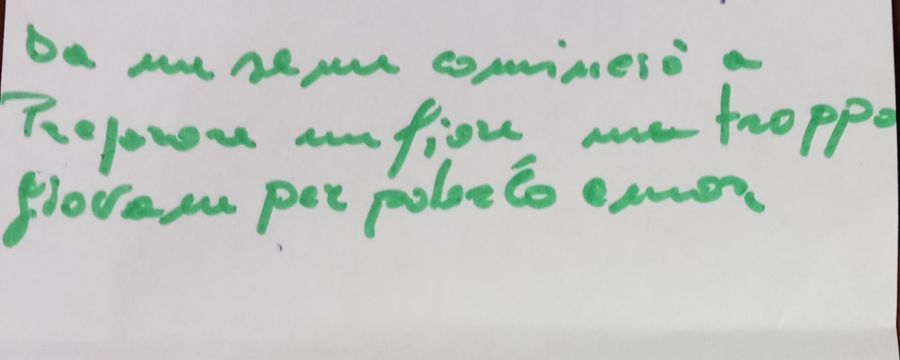 Da un seme cominciò a
Preparare un fiore ma troppo
giovane per poterlo amar